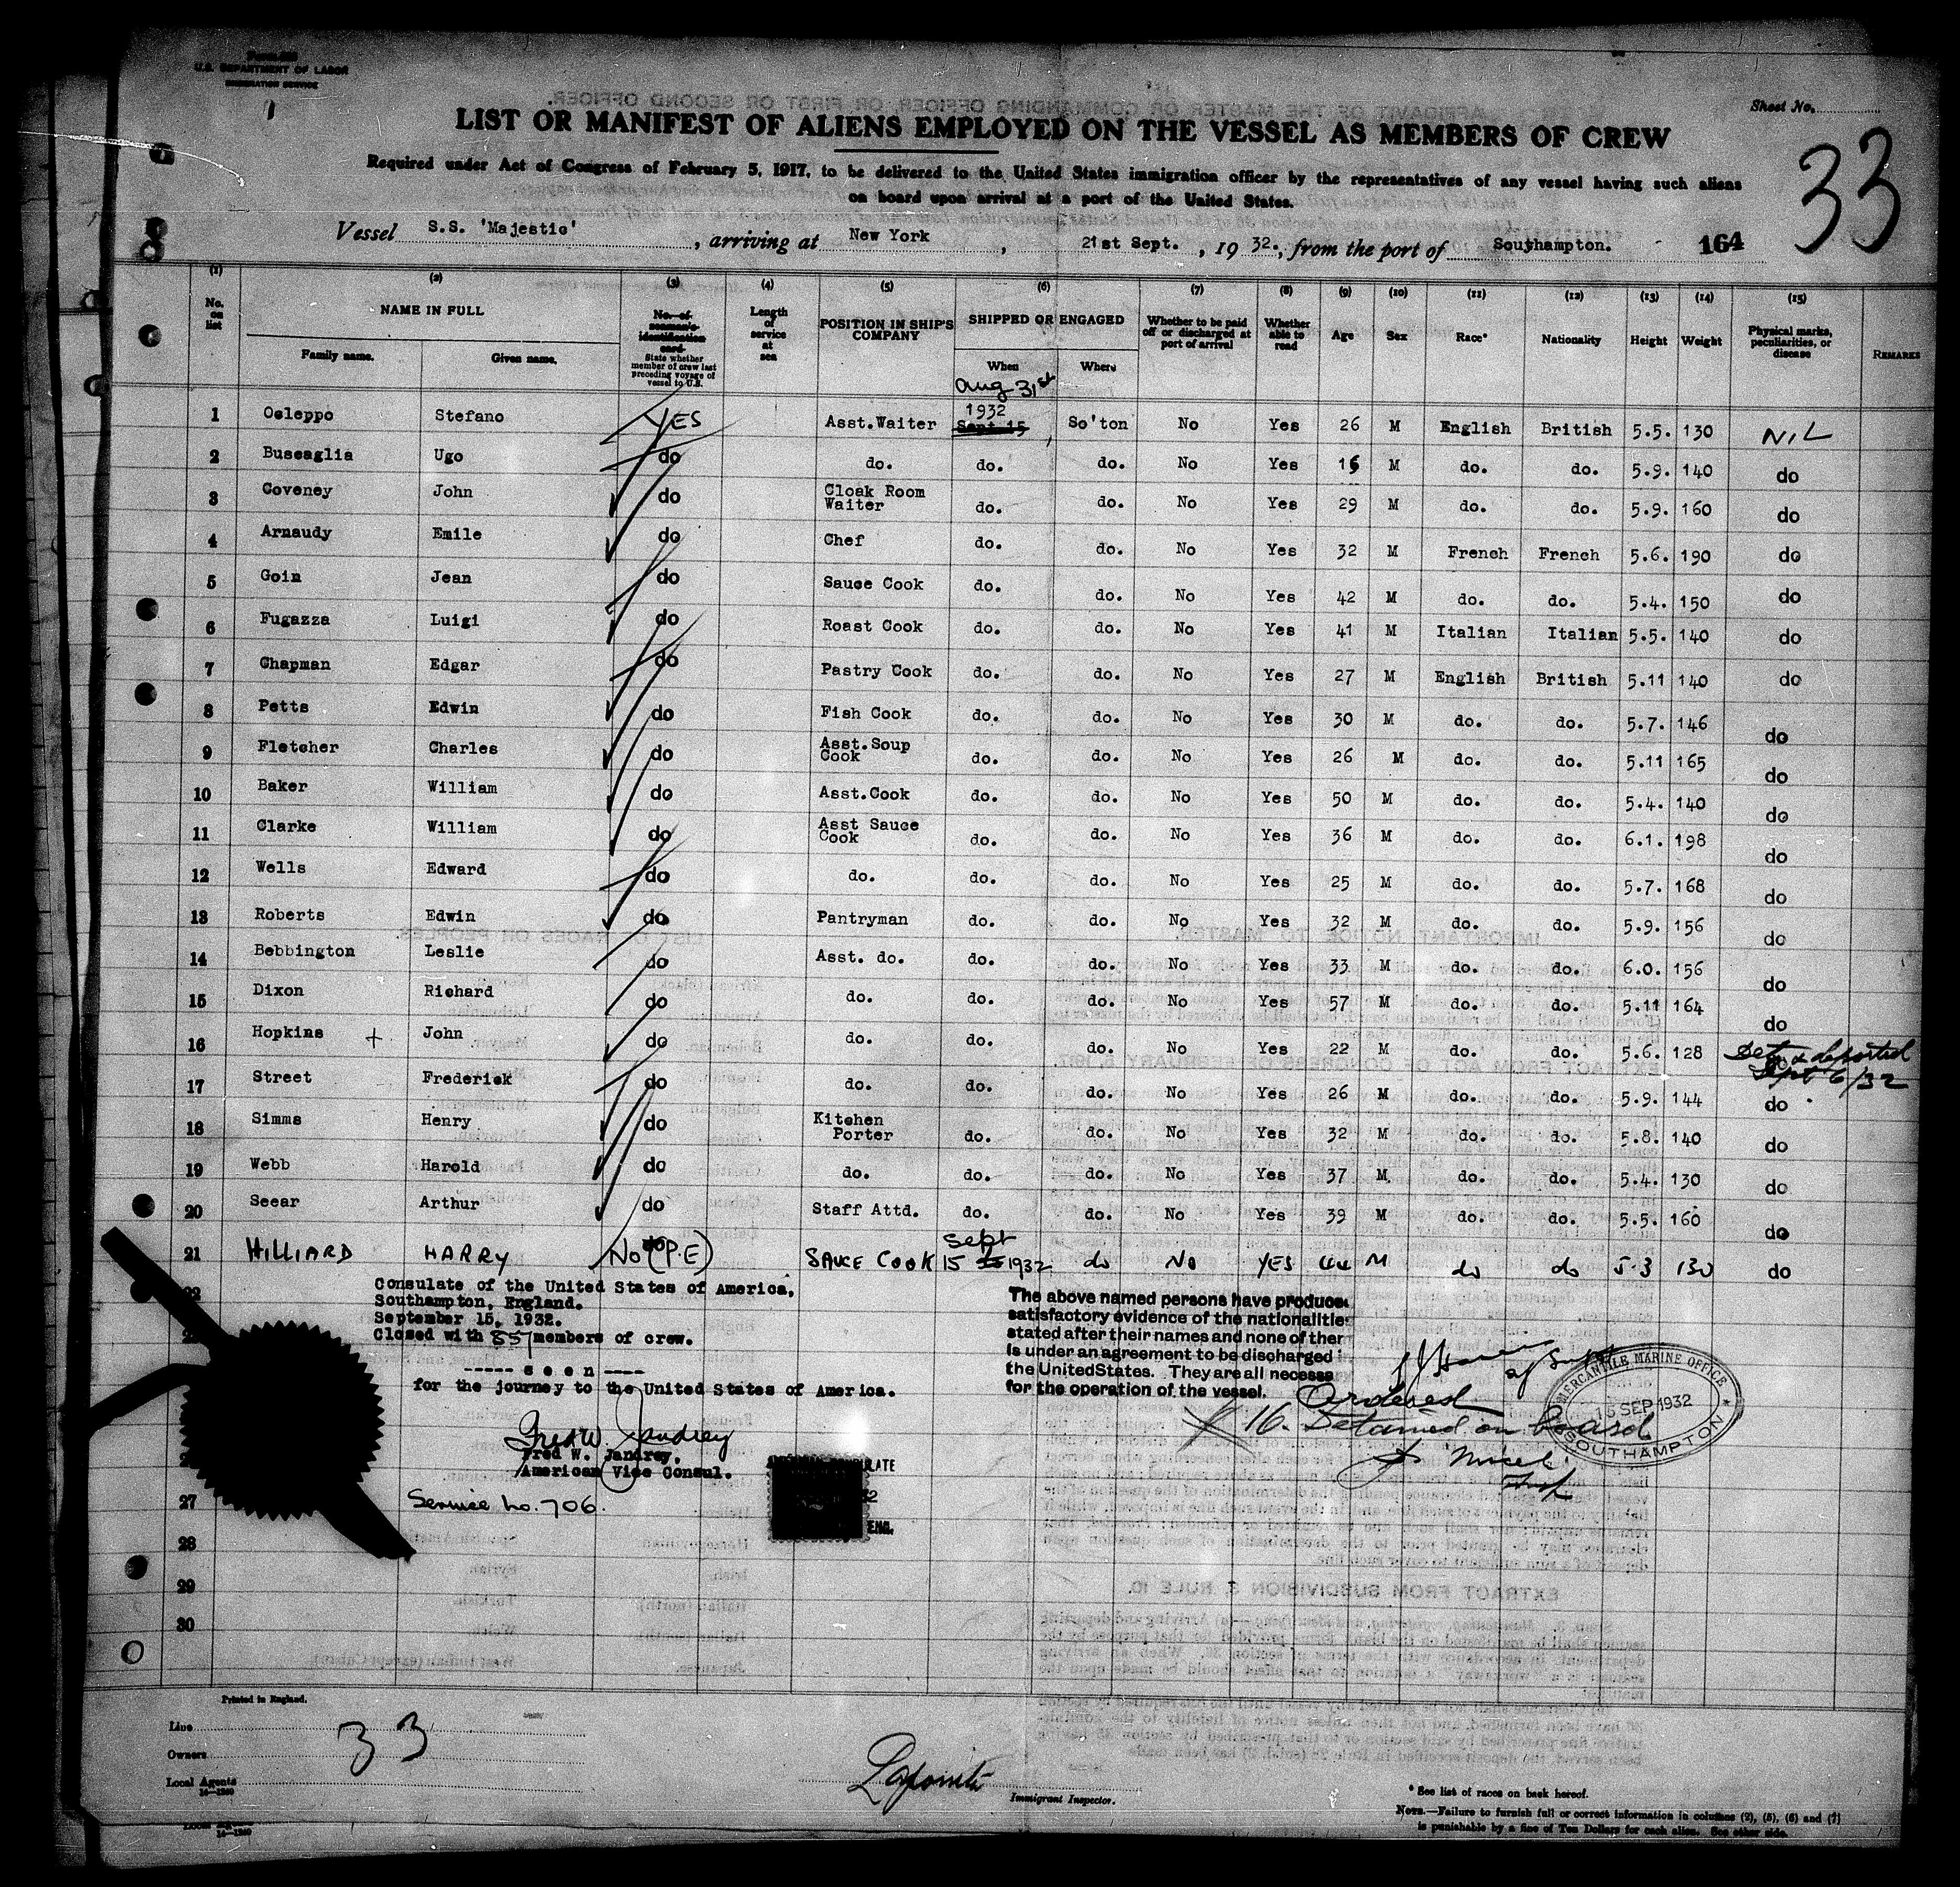 U.S. DEPARTMENT OF LABOR
IMMIGRATION SERVICE
Sheet No.
33
LIST OR MANIFEST OF ALIENS EMPLOYED ON THE VESSEL AS MEMBERS OF CREW
Required under Act of Congress of February 5, 1917, to be delivered to the United States immigration officer by the representatives of any vessel having such aliens
on board upon arrival at a port of the United States.
Vessel S.S. 'Majestic' , arriving at New York , 21st Sept. , 19 32. , from the port of Southampton. 164
(1) (2) (3) (4) (5) (6) (7) (8) (9) (10) (11) (12) (13) (14) (15)
No. on list NAME IN FULL Family name. Given name. No. of seaman's identification card State whether member of crew last preceding voyage of vessel to U.S. Length of service at sea POSITION IN SHIP'S COMPANY SHIPPED OR ENGAGED When Where Whether to be paid off or discharged at port of arrival Whether able to read Age Sex Race* Nationality Height Weight Physical marks, peculiarities, or disease REMARKS
Aug 31st
1 Osleppo Stefano YES Asst.Waiter 1932 Sept 15 So'ton No Yes 26 M English British 5.5. 130 NIL
2 Buscaglia Ugo do do. do. do. No Yes 16 M do. do. 5.9. 140 do
3 Coveney John do Cloak Room Waiter do. do. No Yes 29 M do. do. 5.9. 160 do
4 Arnaudy Emile do Chef do. do. No Yes 32 M French French 5.6. 190 do
5 Goin Jean do Sauce Cook do. do. No Yes 42 M do. do. 5.4. 150 do
6 Fugazza Luigi do Roast Cook do. do. No Yes 41 M Italian Italian 5.5. 140 do
7 Chapman Edgar do Pastry Cook do. do. No Yes 27 M English British 5.11 140 do
8 Petts Edwin do Fish Cook do. do. No Yes 30 M do. do. 5.7. 146 do
9 Fletcher Charles do Asst.Soup Cook do. do. No Yes 26 M do. do. 5.11 165 do
10 Baker William do Asst.Cook do. do. No Yes 50 M do. do. 5.4. 140 do
11 Clarke William do Asst Sauce Cook do. do. No Yes 36 M do. do. 6.1. 198 do
12 Wells Edward do do. do. do. No Yes 25 M do. do. 5.7. 168 do
13 Roberts Edwin do Pantryman do. do. No Yes 32 M do. do. 5.9. 156 do
14 Bebbington Leslie do Asst. do. do. do. No Yes 33 M do. do. 6.0. 156 do
15 Dixon Richard do do. do. do. No Yes 57 M do. do. 5.11 164 do
16 Hopkins + John do do. do. do. No Yes 22 M do. do. 5.6. 128 do Det & deported
Sept 6/32
17 Street Frederick do do. do. do. No Yes 26 M do. do. 5.9. 144 do
18 Simms Henry do Kitchen Porter do. do. No Yes 32 M do. do. 5.8. 140 do
19 Webb Harold do do. do. do. No Yes 37 M do. do. 5.4. 130 do
20 Seear Arthur do Staff Attd. do. do. No Yes 39 M do. do. 5.5. 160 do
21 HILLIARD HARRY No (P.E) SAUCE COOK Sept 15 1932 do No YES 44 M do do 5.3 130 do
Consulate of the United States of America,
Southampton, England.
September 15, 1932.
Closed with 857 members of crew.
----- s e e n ----
for the journey to the United States of America.
Fred W. Jandrey
Fred W. Jandrey,
American Vice Consul.
Service No. 706.
The above named persons have produce
satisfactory evidence of the nationalitie
stated after their names and none of ther
is under an agreement to be discharged i
the United States. They are all necessa
for the operation of the vessel.
MERCANTILE MARINE OFFICE
15 SEP 1932
SOUTHAMPTON
Ordered
X 16. Detained on board
Insp
27
28
29
30
Printed in England.
Line
Owners
33
Local Agents
14—1240
Immigrant Inspector.
* See list of races on back hereof.
NOTE.—Failure to furnish full or correct information in columns (2), (5), (6) and (7)
is punishable by a fine of Ten Dollars for each alien. See other side.